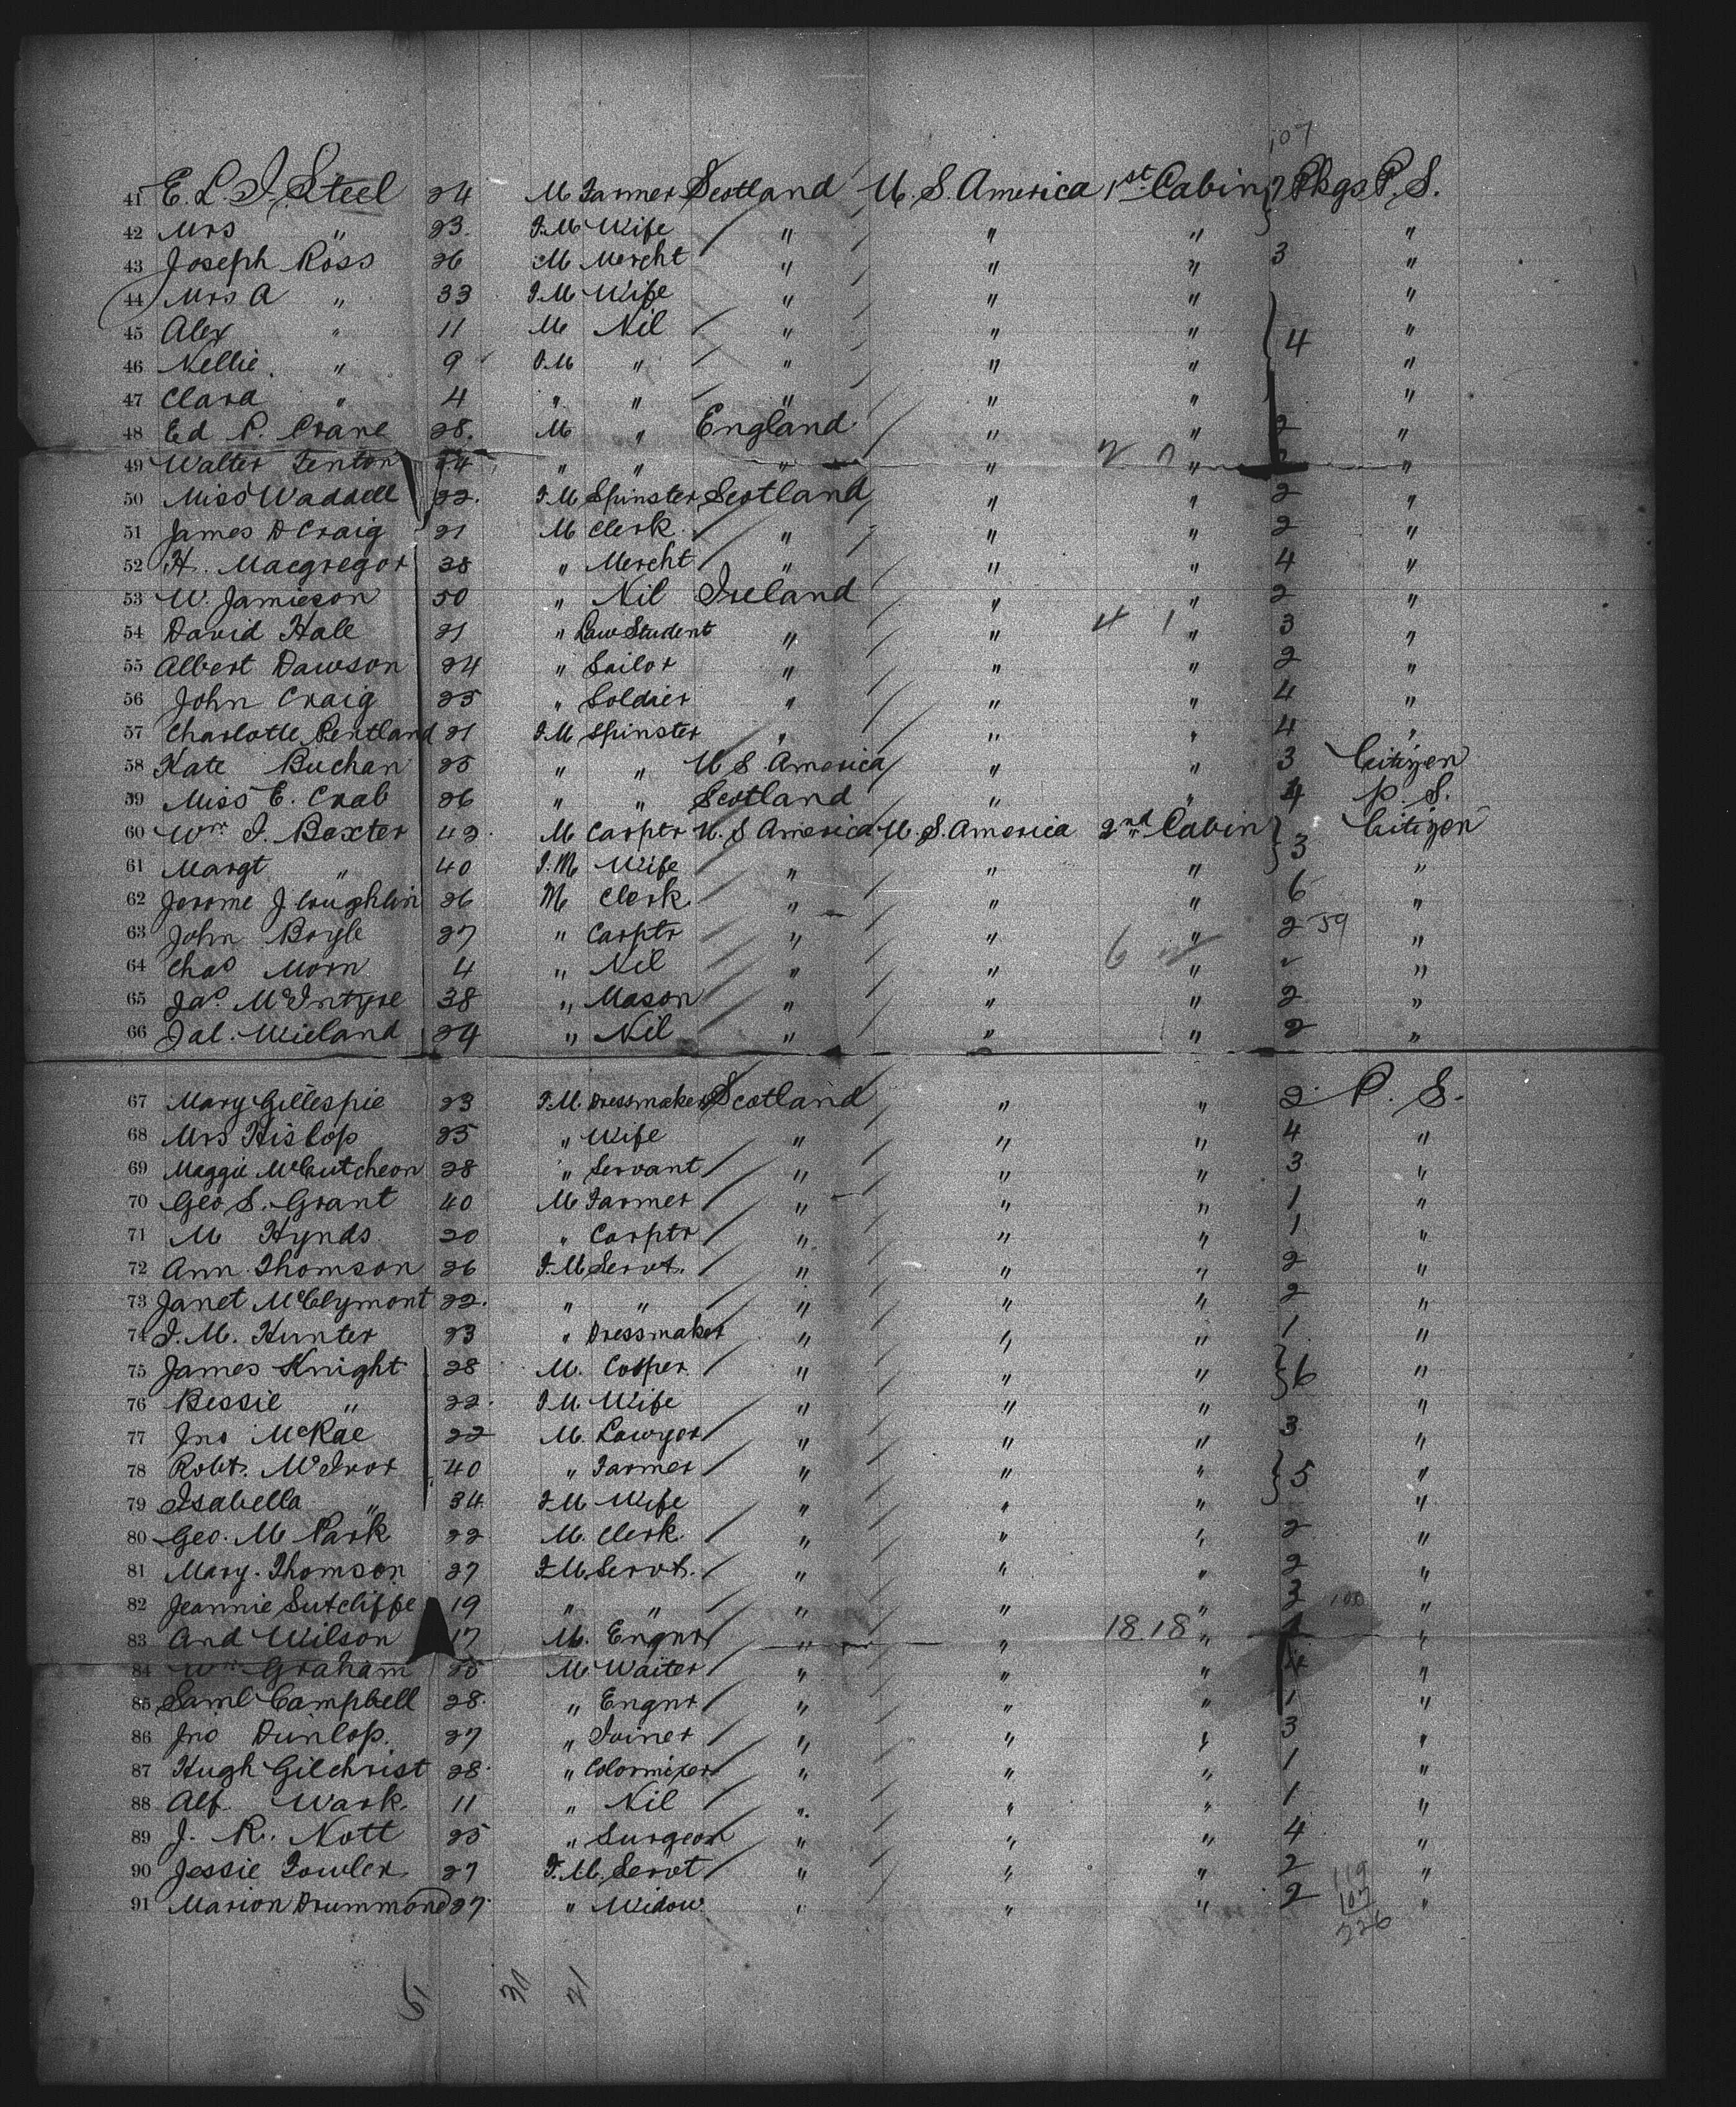 107
41 E. L. J. Steel 24 M Farmer Scotland U. S. America 1st Cabin 7 Pkgs P. S.
42 Mrs " 23 F.M Wife " " " "
43 Joseph Ross 26 M Mercht " " " 3 "
44 Mrs A " 33 F.M Wife " " " "
45 Alex " 11 M Nil " " " 4 "
46 Nellie " 9 F.M " " " " "
47 Clara " 4 " " " " " "
48 Ed P. Crane 28 M " England " " 2 "
49 Walter Fenton 24 " " " " 2 0 " "
50 Miss Waddell 22 F.M Spinster Scotland " " 2 "
51 James D Craig 21 M Clerk " " " 2 "
52 H. Macgregor 38 " Mercht " " " 4 "
53 W. Jamieson 50 " Nil Ireland " " 2 "
54 David Hall 21 " Law Student " " 4 1 " 3 "
55 Albert Dawson 24 " Sailor " " " 2 "
56 John Craig 25 " Soldier " " " 4 "
57 Charlotte Pentland 21 F.M Spinster " " " 4 "
58 Kate Buchan 25 " " U S America " " 3 Citizen
59 Miss E. Crab 26 " " Scotland " " 4 P. S.
60 Wm J. Baxter 42 M Carptr U. S America U. S. America 2nd Cabin 3 Citizen
61 Margt " 40 F.M Wife " " " "
62 Jerome J Coughlin 26 M Clerk " " " 6 "
63 John Boyle 27 " Carptr " " " 2 59 "
64 Chas Morn 4 " Nil " " 6 " "
65 Jas McIntyre 38 " Mason " " " 2 "
66 Jal. Wieland 24 " Nil " " " 2 "
67 Mary Gillespie 23 F.M. Dressmaker Scotland " " 2 P. S.
68 Mrs Hislop 25 " Wife " " " 4 "
69 Maggie McCutcheon 28 " Servant " " " 3 "
70 Geo S. Grant 40 M Farmer " " " 1 "
71 M Hynds 20 " Carptr " " " 1 "
72 Ann Thomson 26 F.M Servt. " " " 2 "
73 Janet McClymont 22 " " " " " 2 "
74 J. M. Hunter 23 " Dressmaker " " " 1 "
75 James Knight 28 M. Cooper " " " 6 "
76 Bessie " 22 F.M Wife " " " "
77 Jno McRae 22 M. Lawyer " " " 3 "
78 Robt. McIvor 40 " Farmer " " " 5 "
79 Isabella " 34 F.M Wife " " " "
80 Geo. M Park 22 M. Clerk " " " 2 "
81 Mary Thomson 27 F.M. Servt. " " " 2 "
82 Jeannie Sutcliffe 19 " " " " " 3 100 "
83 And Wilson 17 M. Engnr " " 18.18 " 1 "
84 Wm Graham 25 M Waiter " " " "
85 Saml Campbell 28 " Engnr " " " 1 "
86 Jno Dunlop 27 " Joiner " " " 3 "
87 Hugh Gilchrist 28 " Colormixer " " " 1 "
88 Alf Wark 11 " Nil " " " 1 "
89 J. R. Nott 25 " Surgeon " " " 4 "
90 Jessie Fowler 27 F.M. Servt " " " 2 119 "
91 Marion Drummond 27 " Widow " " " 2 107 "
226
51 30 21